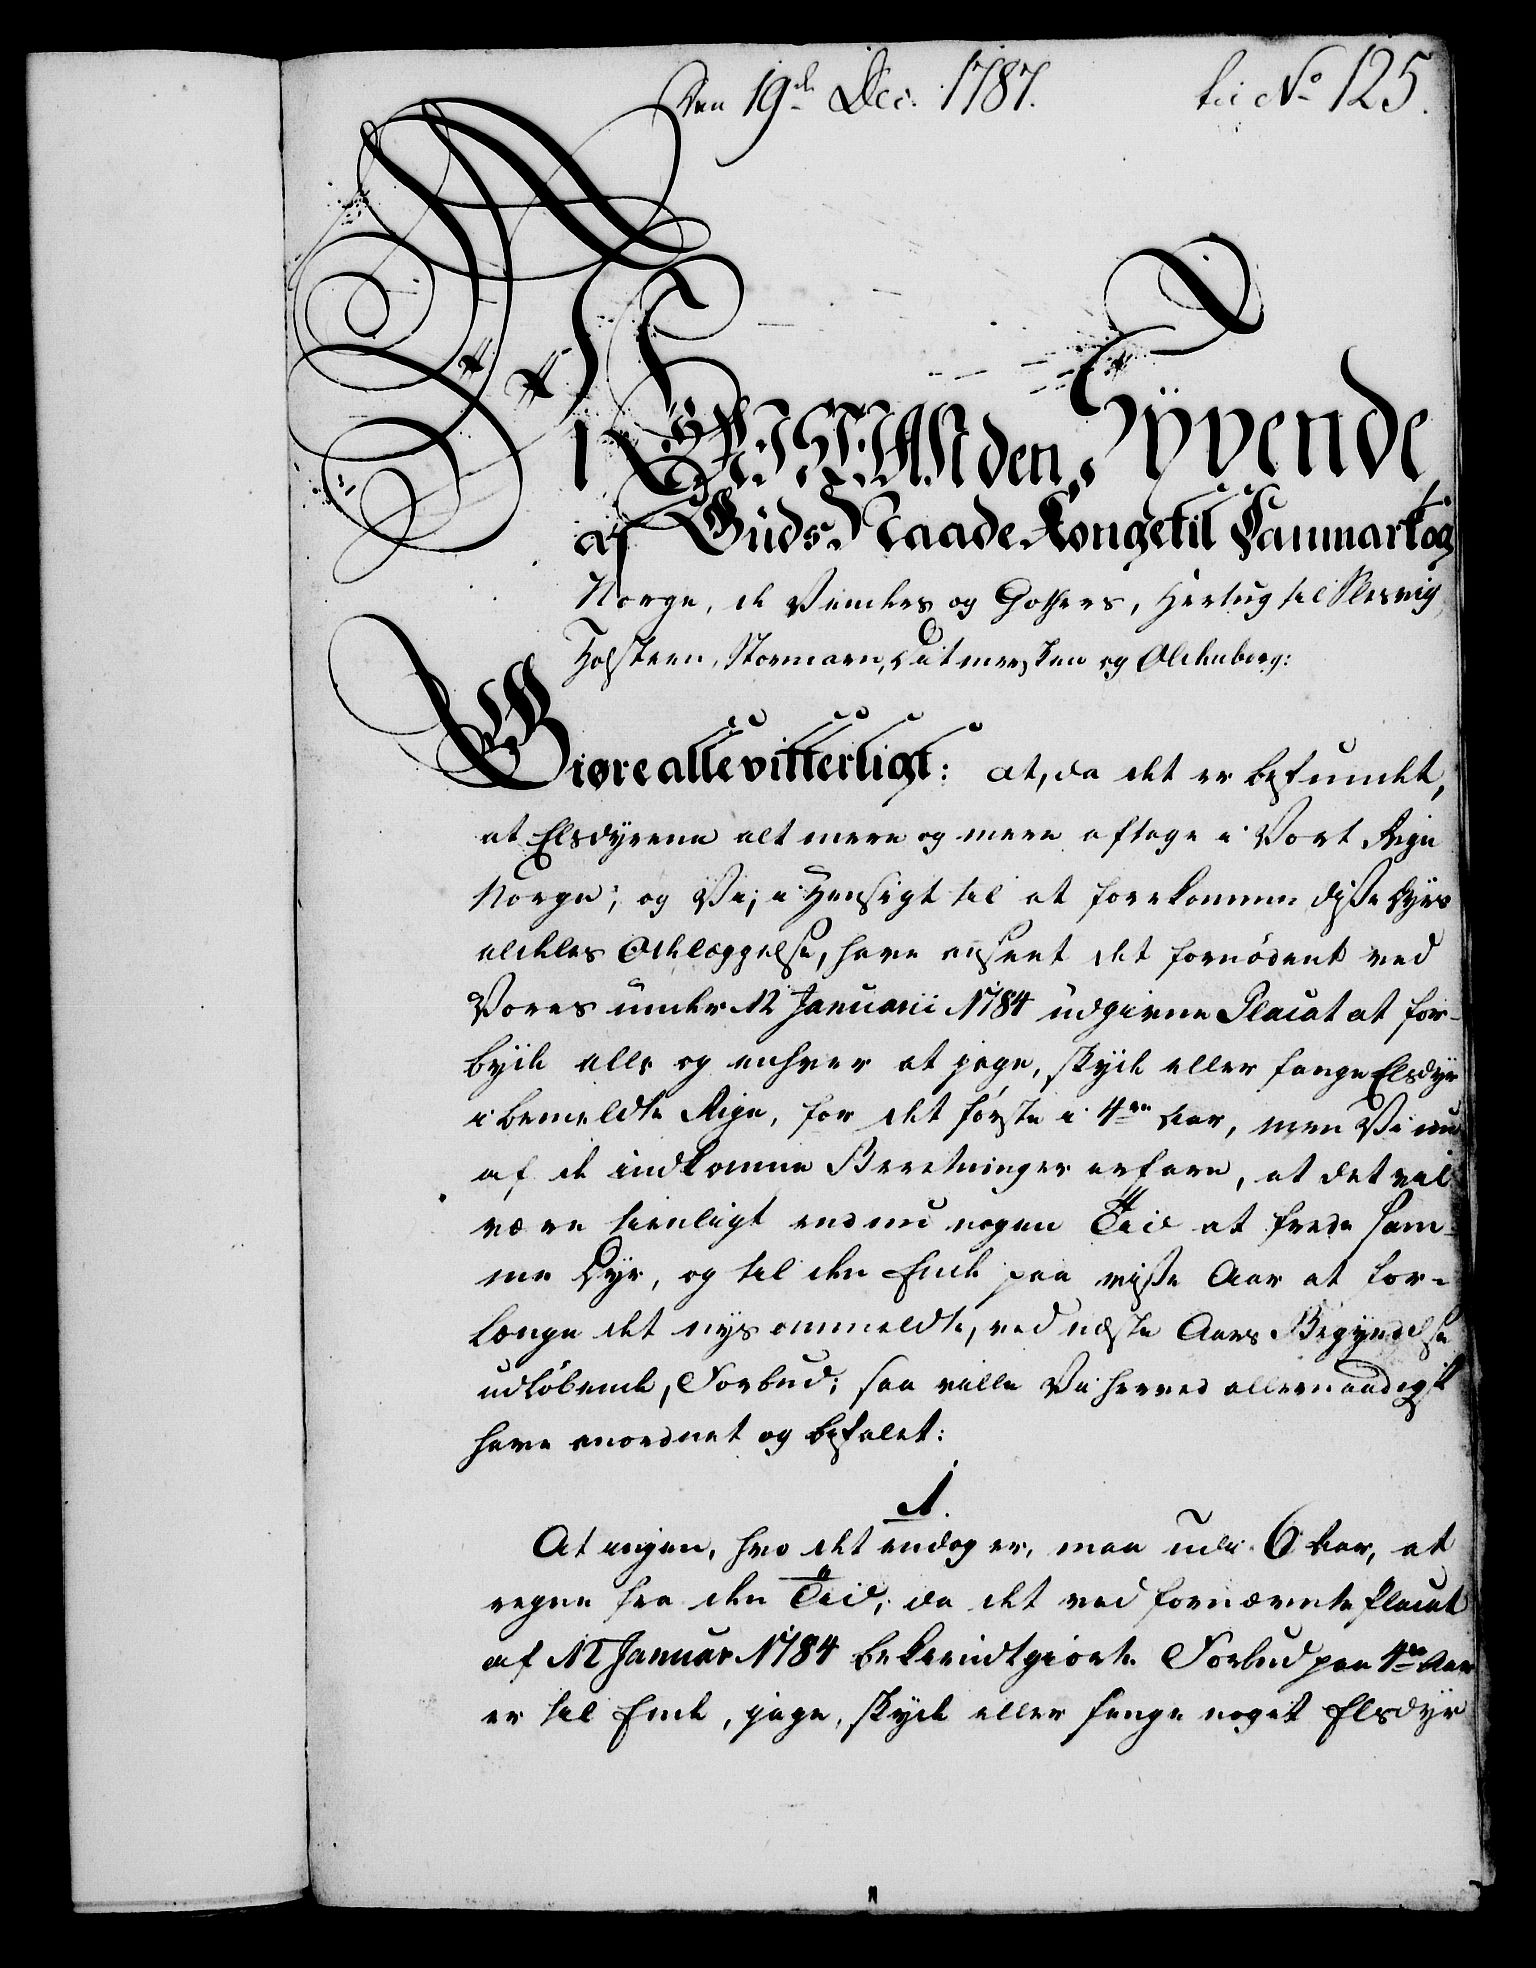 Den 19de Dec: 1787. til No 125.
Wi CHRISTIAN den Syvende
af Guds Naade Konge til Danmark og
Norge, de Venders og Gothers, Hertug til Slesvig
Holsteen, Stormarn, Ditmersken og Oldenborg:
Giøre alle vitterligt: at, da det er befundet,
at Elsdyrene alt mere og mere aftage i Vort Rige
Norge; og Vi, i Hensigt til at forekomme disse Dyrs
aldeles Ødelæggelse, have anseet det fornødent ved
Vores under 12 Januarii 1784 udgivne Placat at for-
byde alle og enhver at jage, skyde eller fange Elsdyr
i bemeldte Rige, for det første i 4re Aar, men Vi nu
af de indkomne Beretninger erfare, at det vil
være tienligt endnu nogen Tid at frede sam-
me Dyr, og til den Ende paa visse Aar at for-
længe det nysanmeldte, ved næste Aars Begyndelse
udløbende, Forbud; saa ville Vi herved allernaadigst
have anordnet og befalet:
1.
At ingen, hvo det endog er, maa udi 6 Aar, at
regne fra den Tid, da det ved fornævnte Placat
af 12 Januar 1784 bekiendtgiorte Forbud paa 4re Aar
er til Ende, jage, skyde eller fange noget Elsdyr